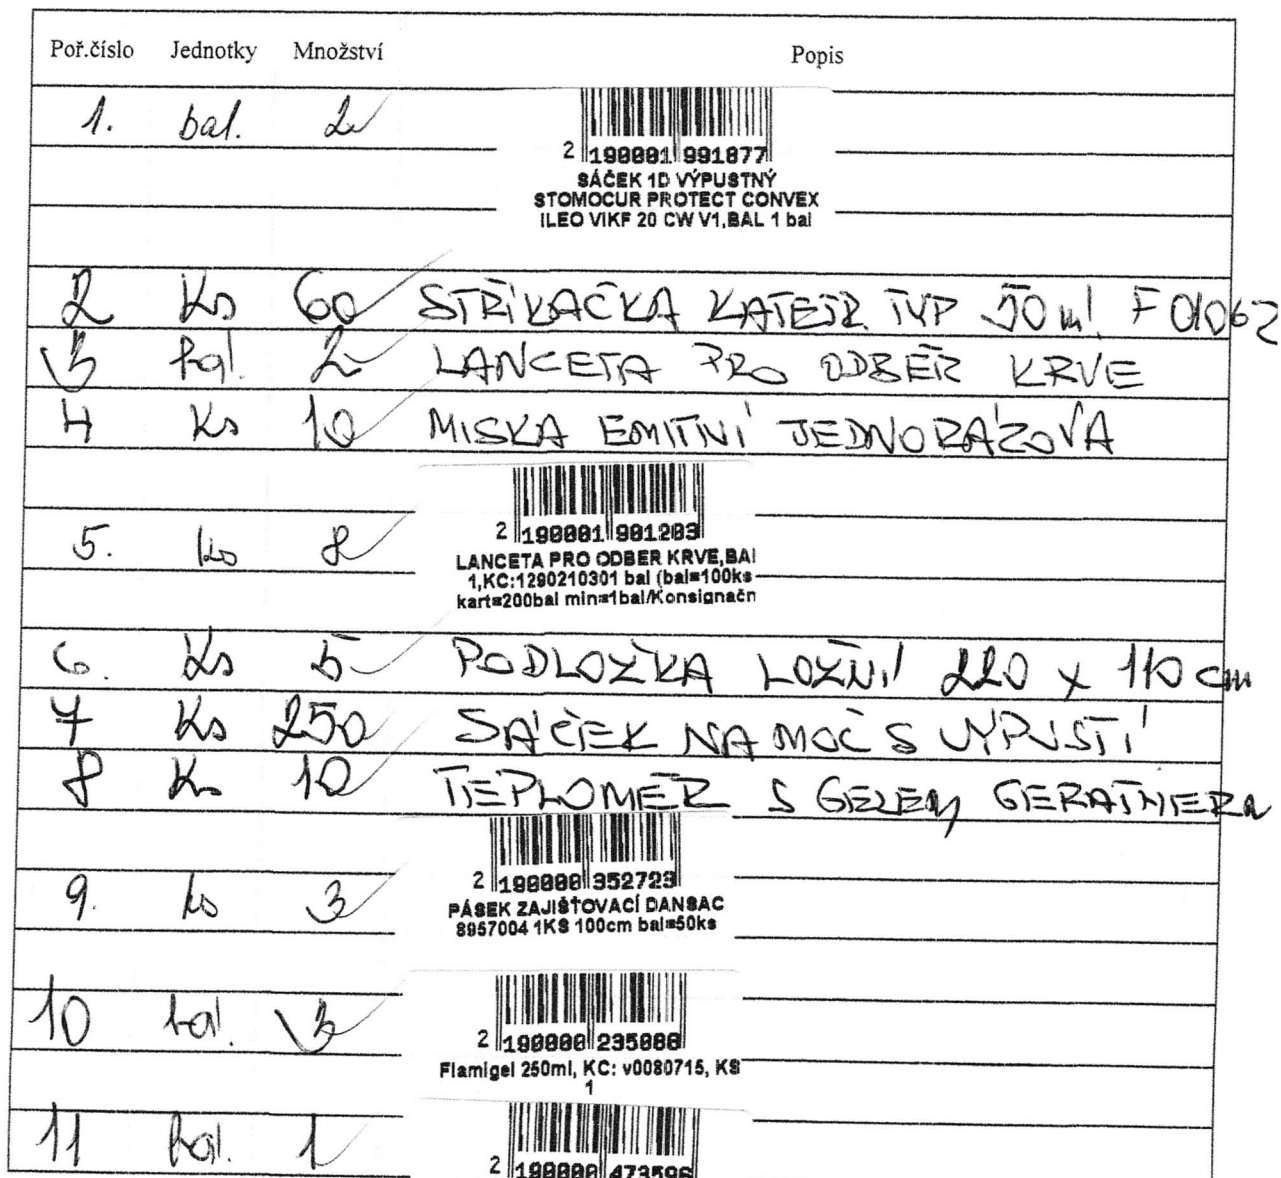 Poř.číslo Jednotky Množství Popis
1. bal. 2
2 190001 991877
SÁČEK 1D VÝPUSTNÝ
STOMOCUR PROTECT CONVEX
ILEO VIKF 20 CW V1,BAL 1 bal
2 Ks 60 STŘÍKAČKA KATETR TYP 50 ml F01062
3 bal. 2 LANCETA PRO ODBĚR KRVE
4 Ks 10 MISKA EMITNÍ JEDNORÁZOVÁ
5. ks 8
2 190001 901203
LANCETA PRO ODBER KRVE,BAl
1,KC:1290210301 bal (bal=100ks
kart=200bal min=1bal/Konsignačn
6. Ks 5 PODLOŽKA LOŽNÍ 220 x 110 cm
7 Ks 250 SÁČEK NA MOČ S VÝPUSTÍ
8 Ks 10 TEPLOMĚR S GELEM GERATHERM
9. ks 3
2 190000 352723
PÁSEK ZAJIŠŤOVACÍ DANSAC
8957004 1KS 100cm bal=50ks
10 bal. 3
2 190000 235088
Flamigel 250ml, KC: v0080715, KS
1
11 bal. 1
2 190000 473596